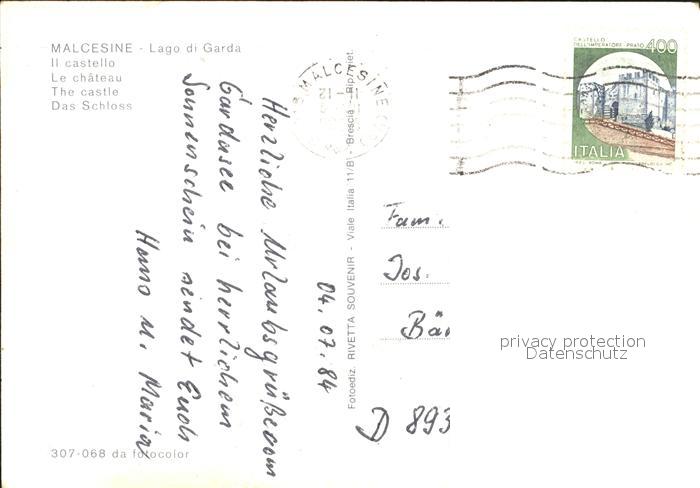 MALCESINE - Lago di Garda
Il castello
Le château
The castle
Das Schloss
04.07.84
Herzliche Urlaubsgrüße vom
Gardasee bei herrlichem
Sonnenschein sendet Euch
Hans u. Maria
307-068 da fotocolor
Fotoediz. RIVETTA SOUVENIR - Viale Italia 11/B - Brescia - Rip. viet.
MALCESINE
12
CASTELLO
DELL'IMPERATORE - PRATO 400
ITALIA
Fam.
Jos.
Bä
D 893
privacy protection
Datenschutz